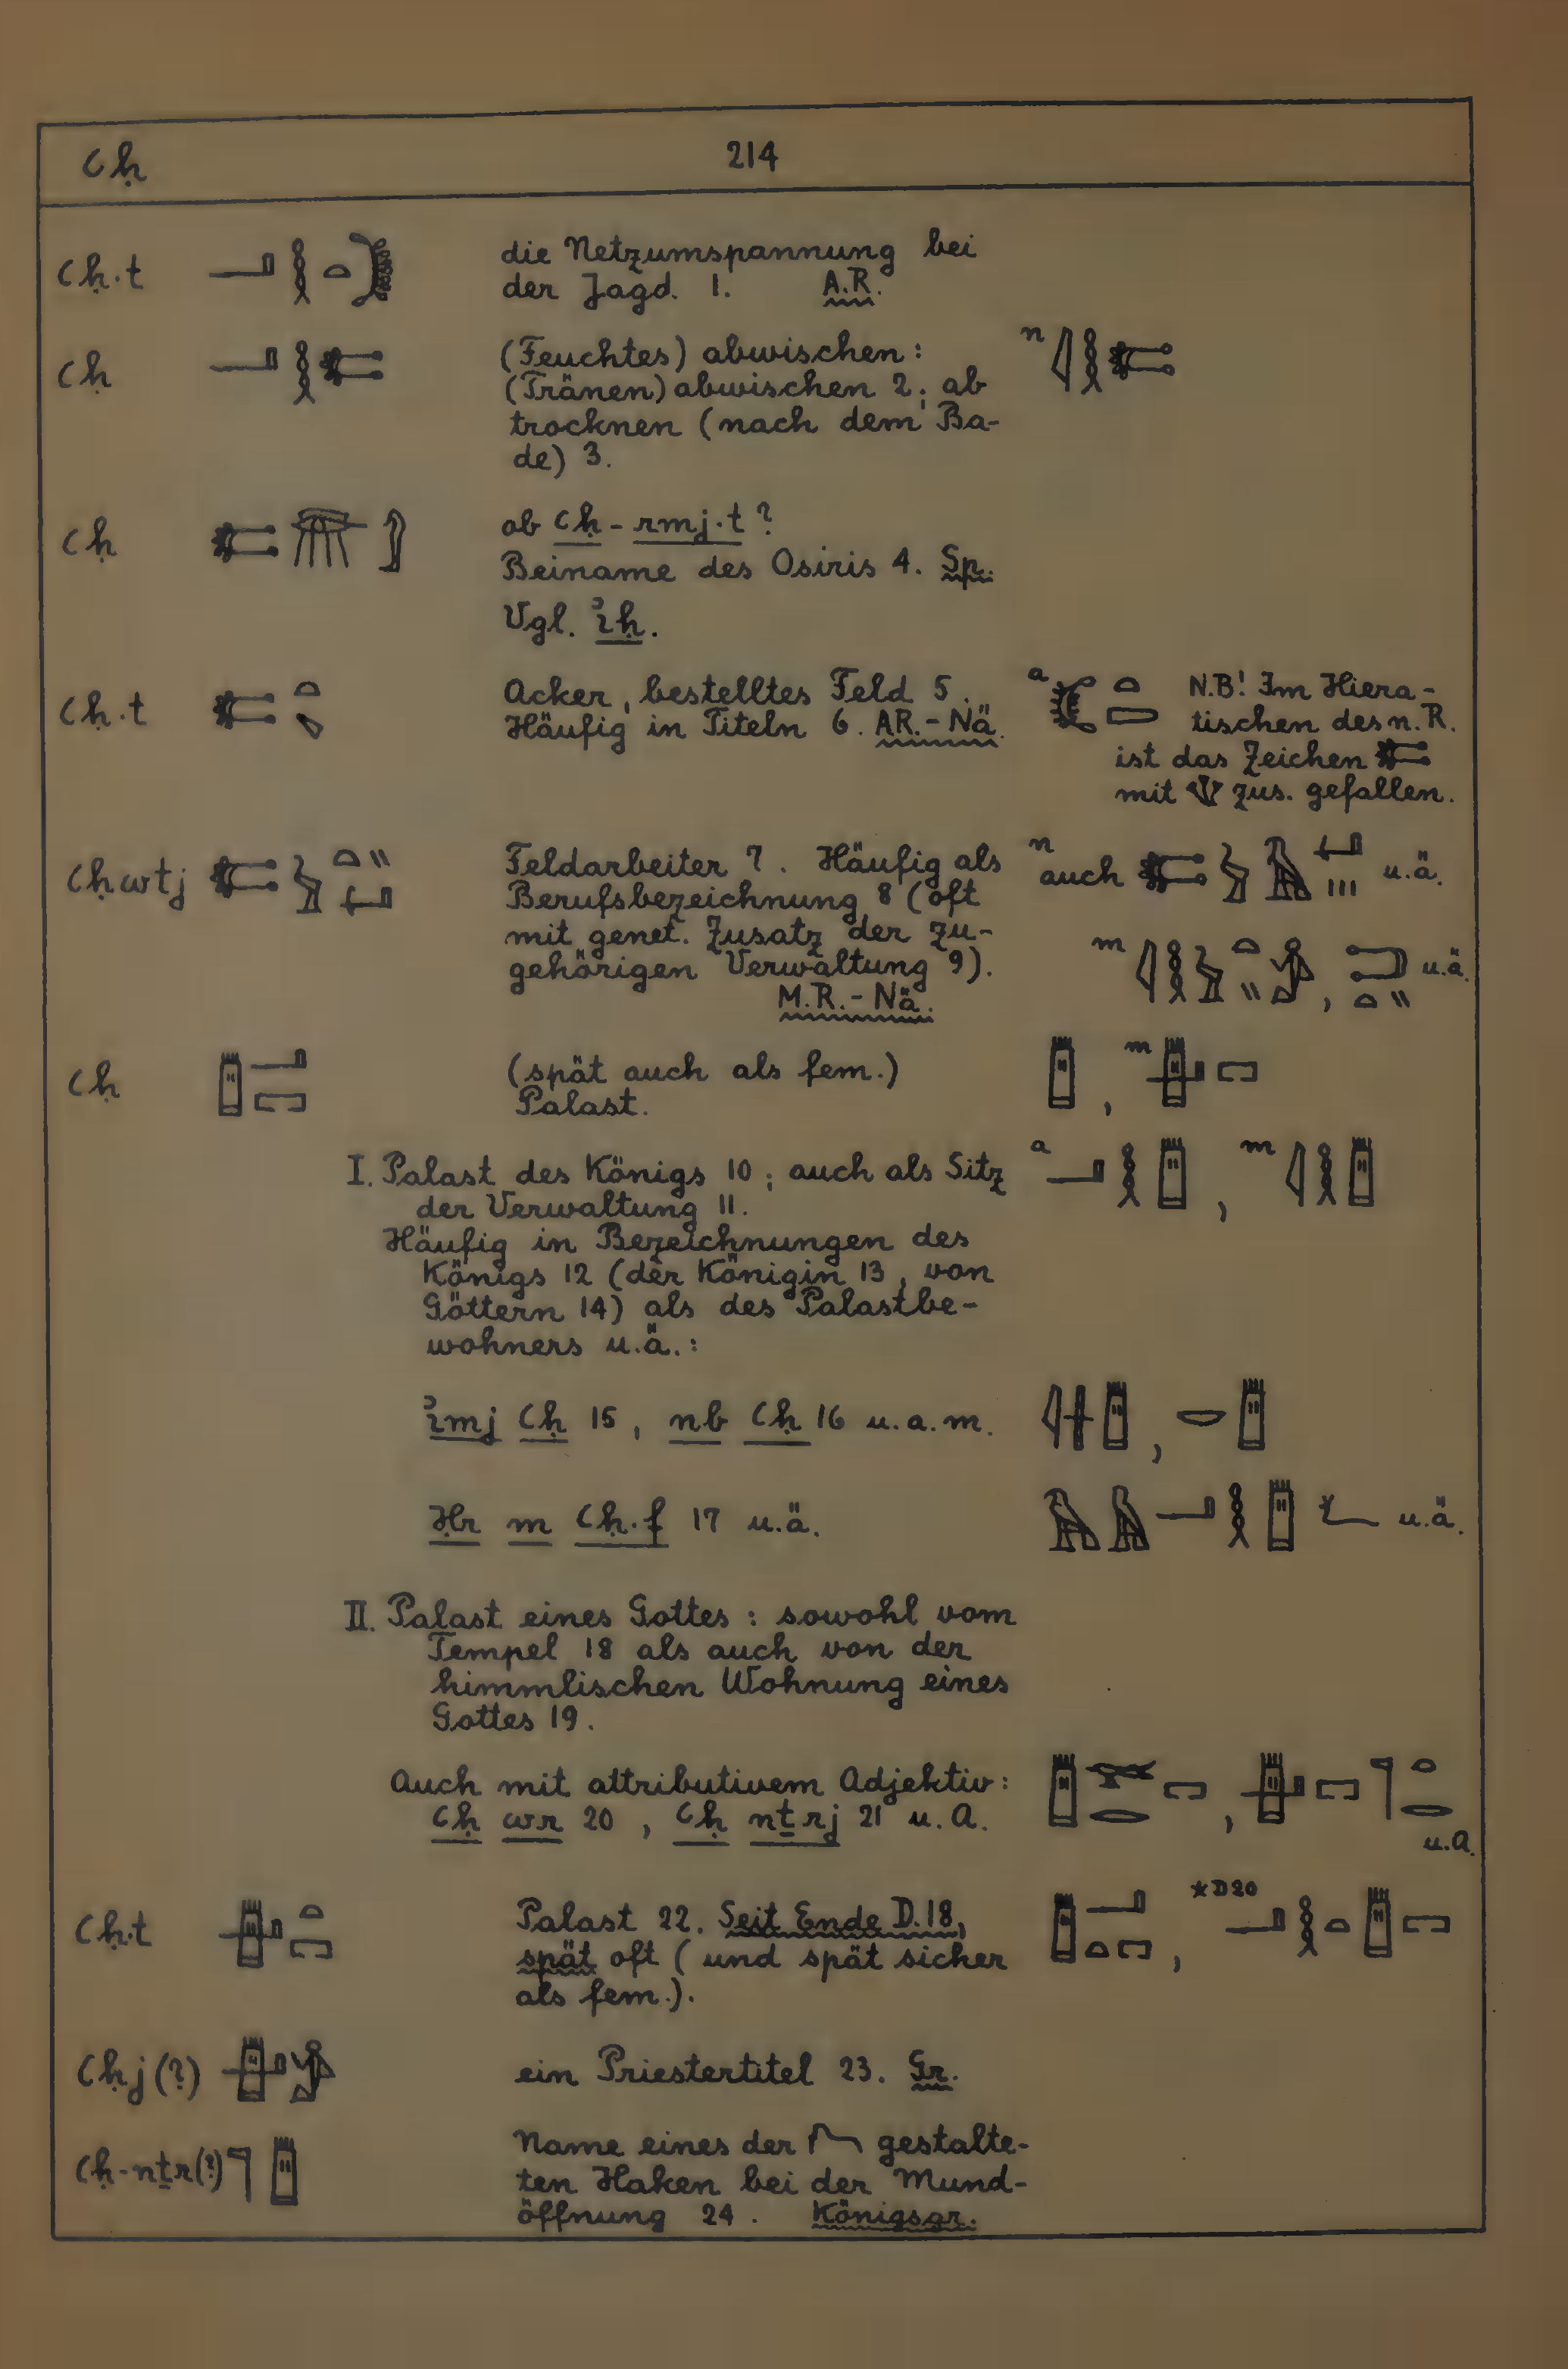 ꜥḥ 214
ꜥḥ.t die Netzumspannung bei
der Jagd. 1. A.R.
ꜥḥ (Feuchtes) abwischen: n
(Tränen) abwischen 2; ab
trocknen (nach dem Ba-
de) 3.
ꜥḥ ob ꜥḥ - rmj.t ?
Beiname des Osiris 4. Sp.
Vgl. i҆ḥ.
ꜥḥ.t Acker, bestelltes Feld 5. a N.B! Im Hiera-
Häufig in Titeln 6. AR.-Nä. tischen des n.R.
ist das Zeichen
mit zus. gefallen.
ꜥḥwtj Feldarbeiter 7. Häufig als n auch u.ä.
Berufsbezeichnung 8 (oft
mit genet. Zusatz der zu-
gehörigen Verwaltung 9). m , u.ä.
M.R.-Nä.
ꜥḥ (spät auch als fem.) , m
Palast.
I. Palast des Königs 10; auch als Sitz a , m
der Verwaltung 11.
Häufig in Bezeichnungen des
Königs 12 (der Königin 13, von
Göttern 14) als des Palastbe-
wohners u.ä.:
i҆mj ꜥḥ 15, nb ꜥḥ 16 u.a.m. ,
Ḥr m ꜥḥ.f 17 u.ä. u.ä.
II. Palast eines Gottes: sowohl vom
Tempel 18 als auch von der
himmlischen Wohnung eines
Gottes 19.
Auch mit attributivem Adjektiv:
ꜥḥ wr 20, ꜥḥ nṯrj 21 u.A. , u.A.
ꜥḥ.t Palast 22. Seit Ende D.18, , *D20
spät oft (und spät sicher
als fem.).
ꜥḥj(?) ein Priestertitel 23. Gr.
ꜥḥ-nṯr(?) Name eines der gestalte-
ten Haken bei der Mund-
öffnung 24. Königsgr.